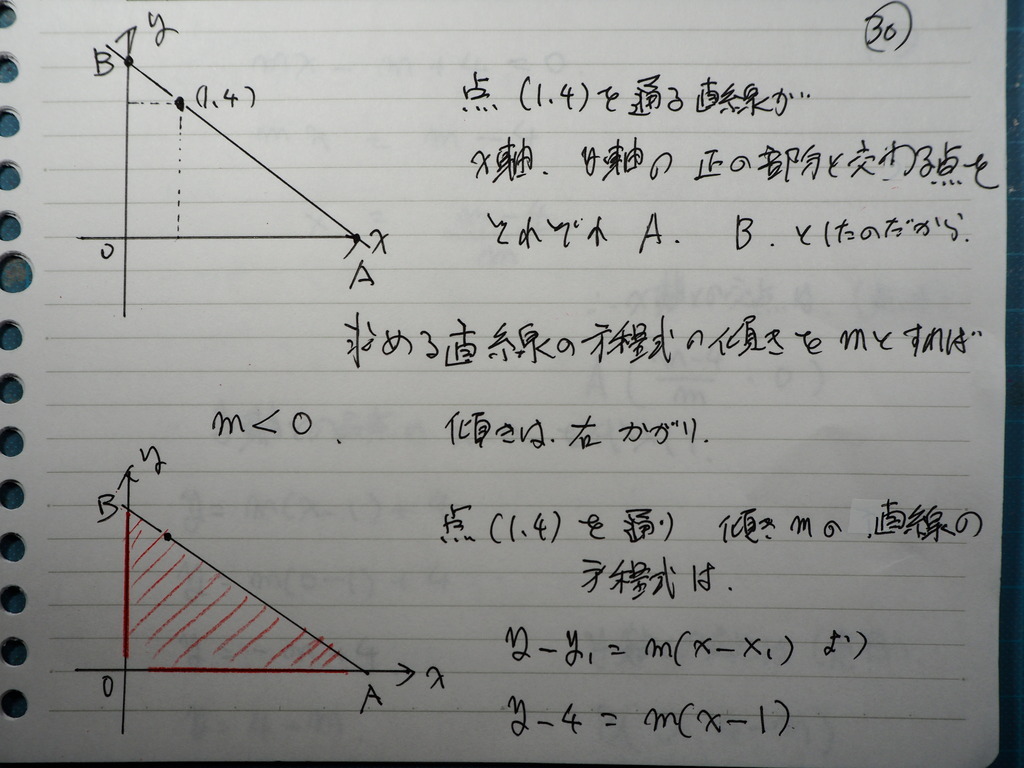 30
y
B
(1,4)
0
x
A
点 (1,4) を通る直線が
x軸. y軸の 正の部分と交わる点を
それぞれ A. B. としたのだから.
求める直線の方程式の傾きを mとすれば
m < 0. 傾きは. 右 かがり.
y
B
0
A
x
点 (1,4) を通り 傾き mの 直線の
方程式は.
y - y₁ = m(x - x₁) より
y - 4 = m(x - 1)